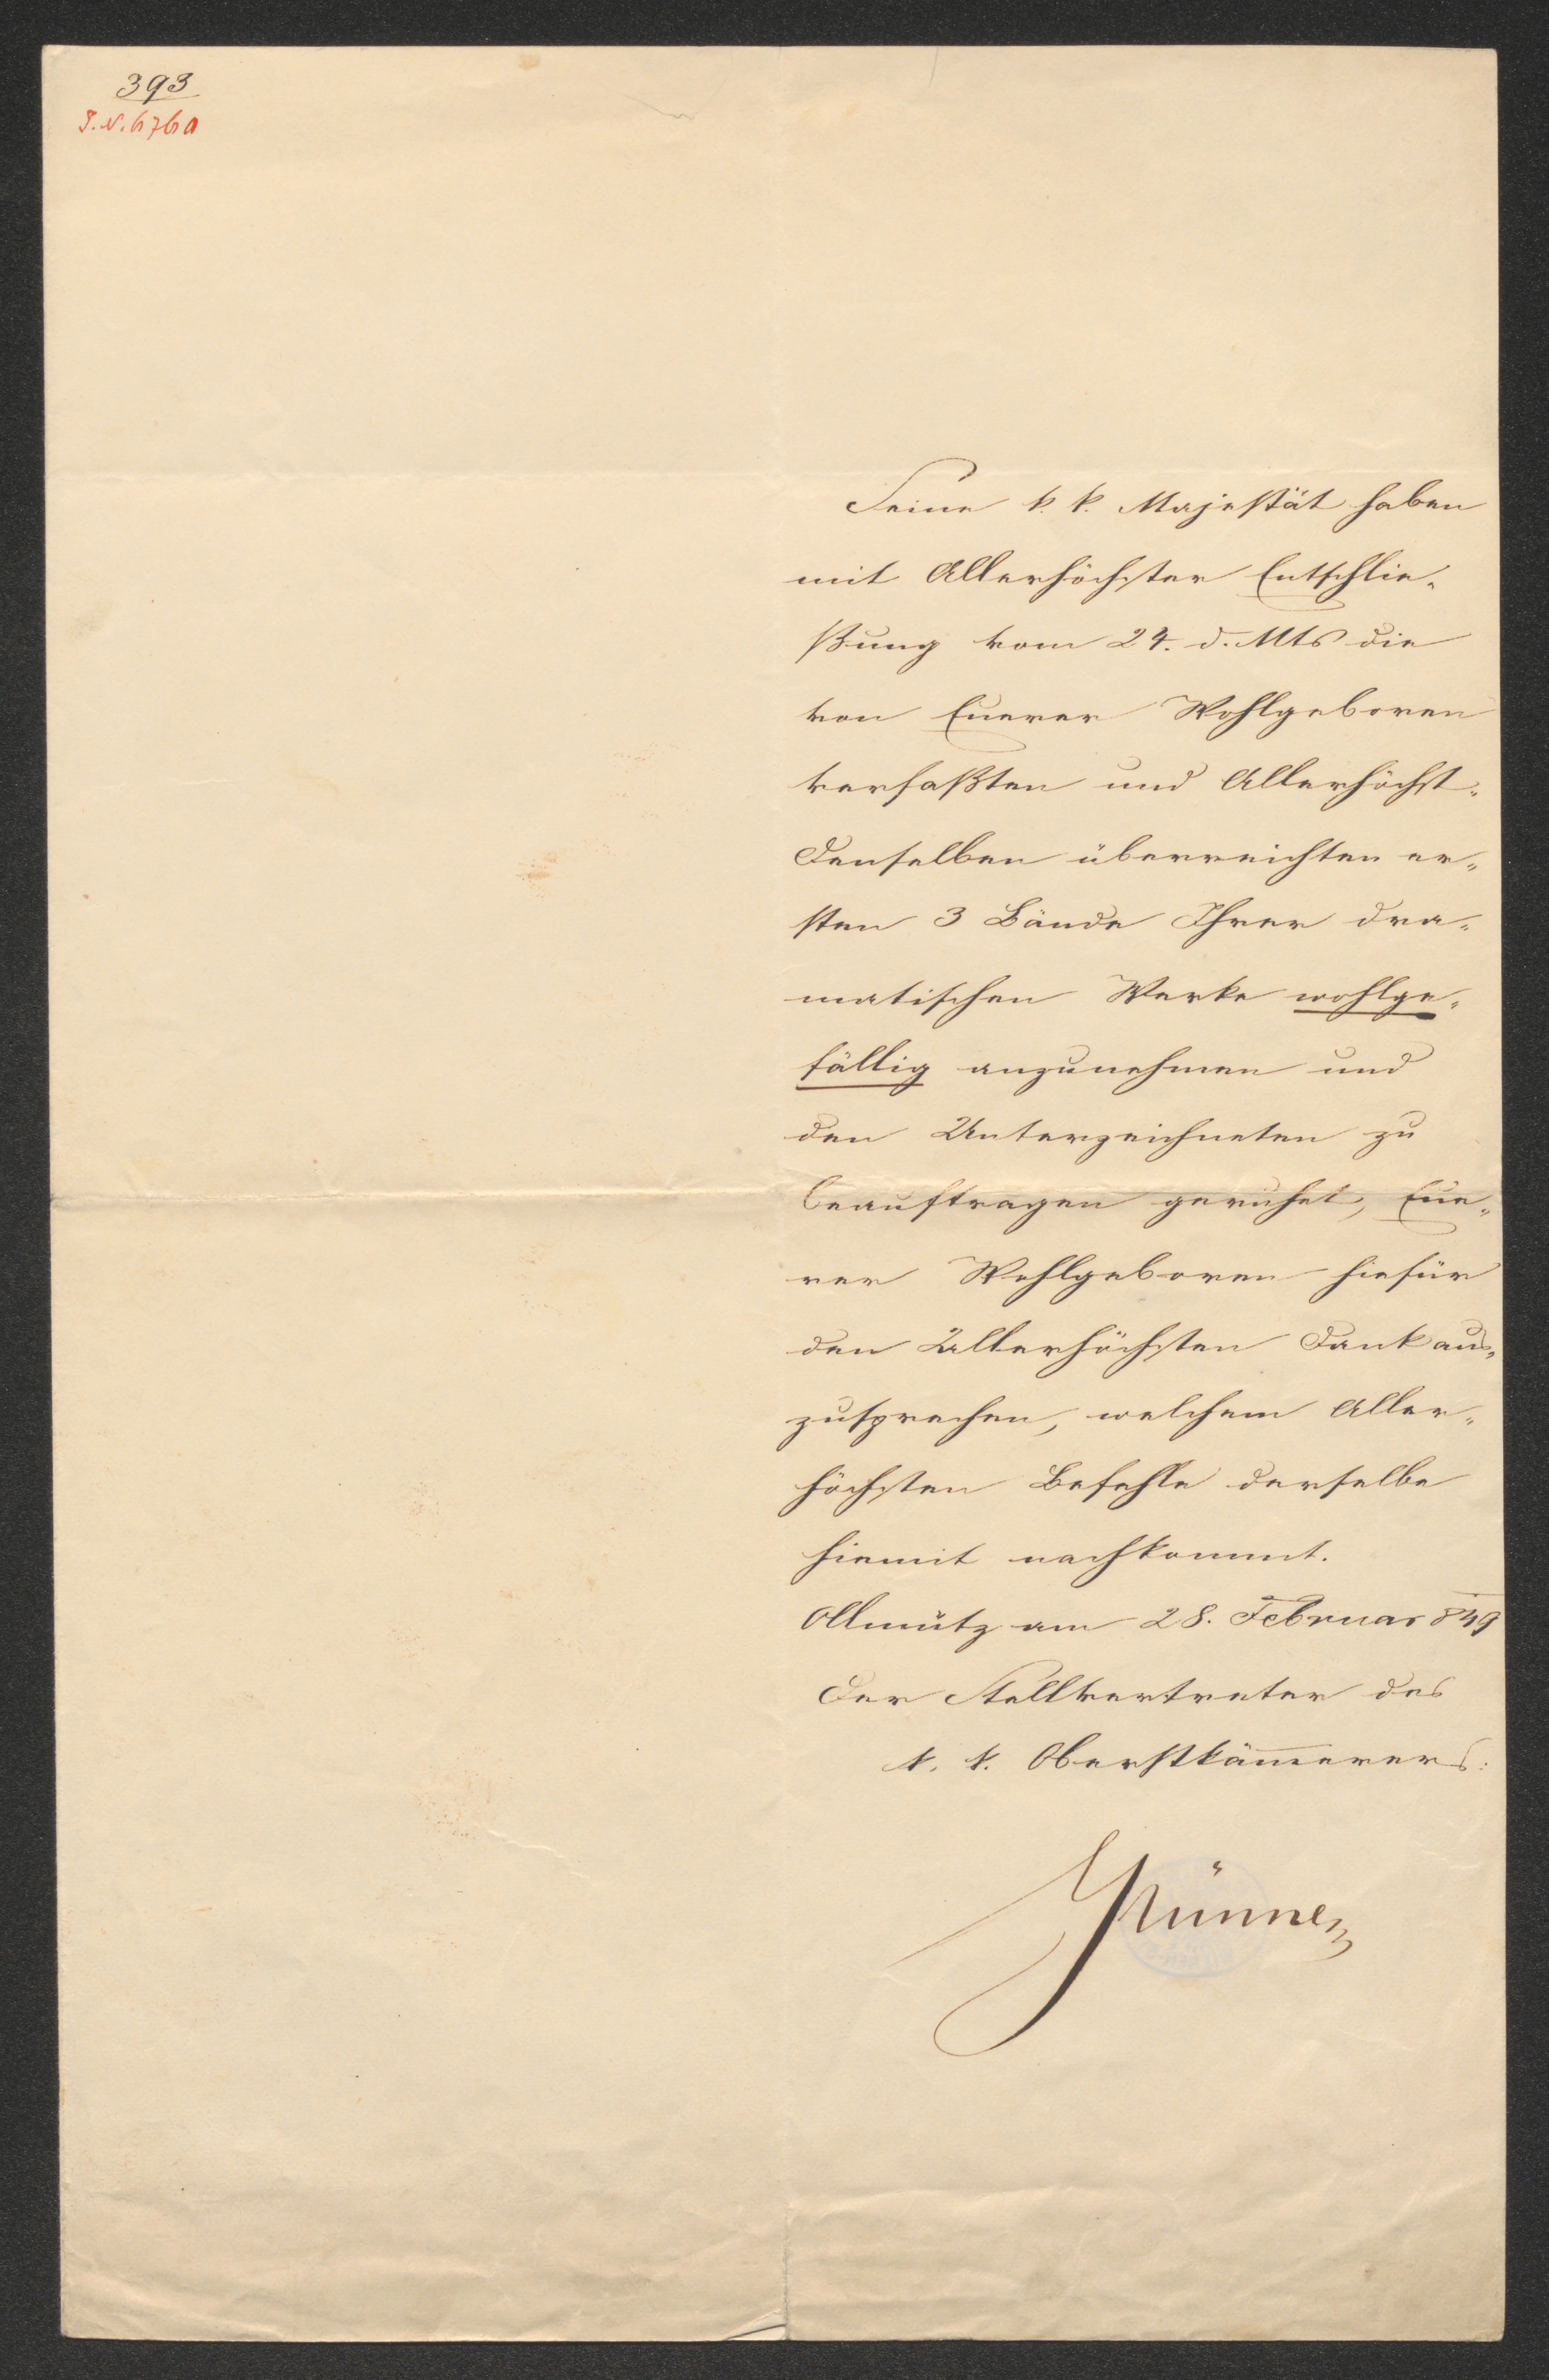 393
I.N. 6760
Seine k. k. Majestät haben
mit Allerhöchster Entschlie-
ßung vom 24. d. Mts die
von Euerer Wohlgeboren
verfaßten und Allerhöchst-
denselben überreichten er-
sten 3 Bände Ihrer dra-
matischen Werke wohlge-
fällig anzunehmen und
den Unterzeichneten zu
beauftragen geruhet, Eue-
rer Wohlgeboren hiefür
den Allerhöchsten Dank aus-
zusprechen, welchem Aller-
höchsten Befehle derselbe
hiemit nachkommt.
Ollmütz am 28. Februar 849
Der Stellvertreter des
k. k. Oberstkäm̅erers:
Grünne